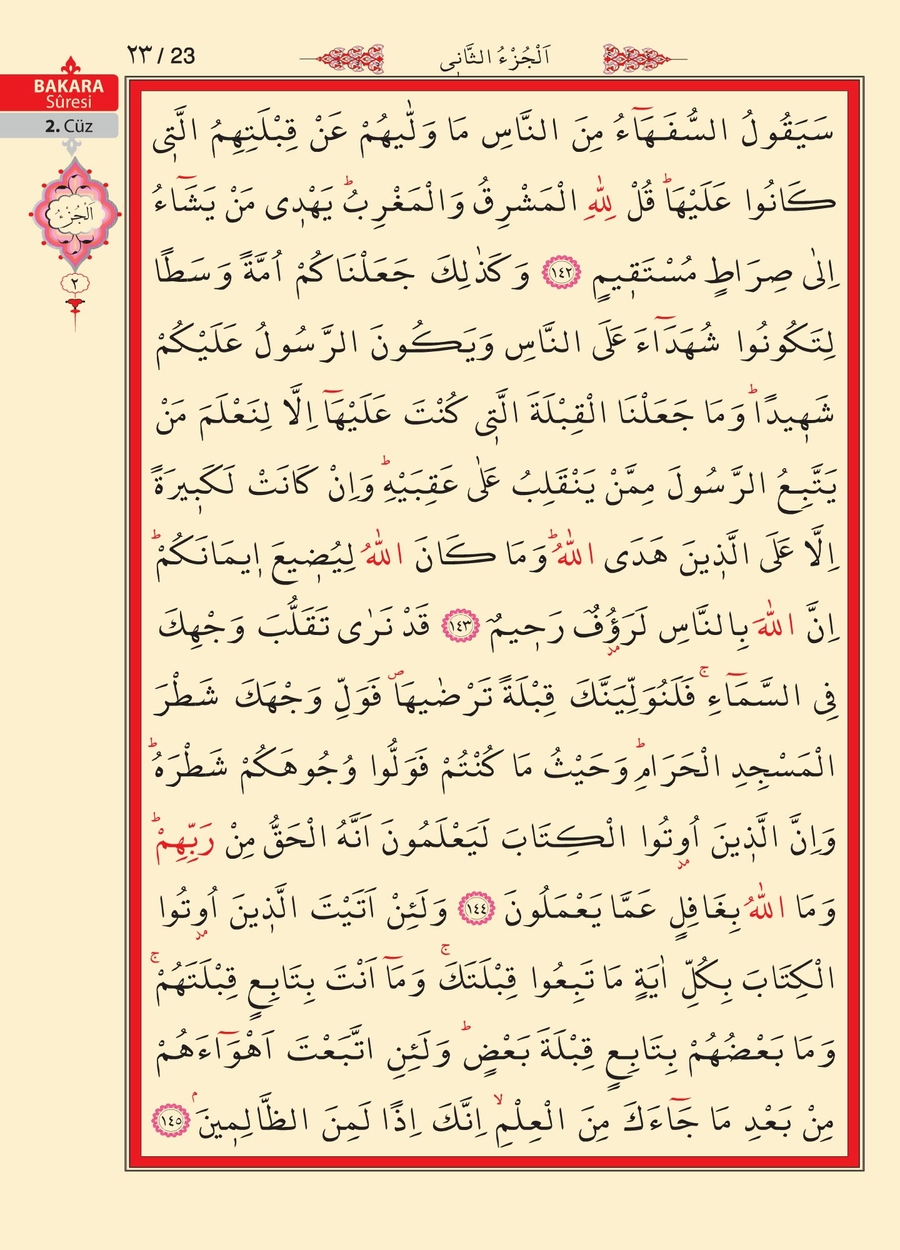 ٢٣ / 23
اَلْجُزْءُ الثَّانِي
BAKARA
Sûresi
2. Cüz
اَلْجُزْءُ
٢
سَيَقُولُ السُّفَهَٓاءُ مِنَ النَّاسِ مَا وَلّٰيهُمْ عَنْ قِبْلَتِهِمُ الَّت۪ي
كَانُوا عَلَيْهَاۜ قُلْ لِلّٰهِ الْمَشْرِقُ وَالْمَغْرِبُۜ يَهْد۪ي مَنْ يَشَٓاءُ
اِلٰى صِرَاطٍ مُسْتَق۪يمٍ ﴿١٤٢﴾ وَكَذٰلِكَ جَعَلْنَاكُمْ اُمَّةً وَسَطًا
لِتَكُونُوا شُهَدَٓاءَ عَلَى النَّاسِ وَيَكُونَ الرَّسُولُ عَلَيْكُمْ
شَه۪يدًاۜ وَمَا جَعَلْنَا الْقِبْلَةَ الَّت۪ي كُنْتَ عَلَيْهَٓا اِلَّا لِنَعْلَمَ مَنْ
يَتَّبِعُ الرَّسُولَ مِمَّنْ يَنْقَلِبُ عَلٰى عَقِبَيْهِۜ وَاِنْ كَانَتْ لَكَب۪يرَةً
اِلَّا عَلَى الَّذ۪ينَ هَدَى اللّٰهُۜ وَمَا كَانَ اللّٰهُ لِيُض۪يعَ ا۪يمَانَكُمْۜ
اِنَّ اللّٰهَ بِالنَّاسِ لَرَؤُ۫فٌ رَح۪يمٌ ﴿١٤٣﴾ قَدْ نَرٰى تَقَلُّبَ وَجْهِكَ
فِي السَّمَٓاءِۚ فَلَنُوَلِّيَنَّكَ قِبْلَةً تَرْضٰيهَاۖ فَوَلِّ وَجْهَكَ شَطْرَ
الْمَسْجِدِ الْحَرَامِۜ وَحَيْثُ مَا كُنْتُمْ فَوَلُّوا وُجُوهَكُمْ شَطْرَهُۜ
وَاِنَّ الَّذ۪ينَ اُو۫تُوا الْكِتَابَ لَيَعْلَمُونَ اَنَّهُ الْحَقُّ مِنْ رَبِّهِمْۜ
وَمَا اللّٰهُ بِغَافِلٍ عَمَّا يَعْمَلُونَ ﴿١٤٤﴾ وَلَئِنْ اَتَيْتَ الَّذ۪ينَ اُو۫تُوا
الْكِتَابَ بِكُلِّ اٰيَةٍ مَا تَبِعُوا قِبْلَتَكَۚ وَمَٓا اَنْتَ بِتَابِعٍ قِبْلَتَهُمْۚ
وَمَا بَعْضُهُمْ بِتَابِعٍ قِبْلَةَ بَعْضٍۜ وَلَئِنِ اتَّبَعْتَ اَهْوَٓاءَهُمْ
مِنْ بَعْدِ مَا جَٓاءَكَ مِنَ الْعِلْمِۙ اِنَّكَ اِذًا لَمِنَ الظَّالِم۪ينَۢ ﴿١٤٥﴾